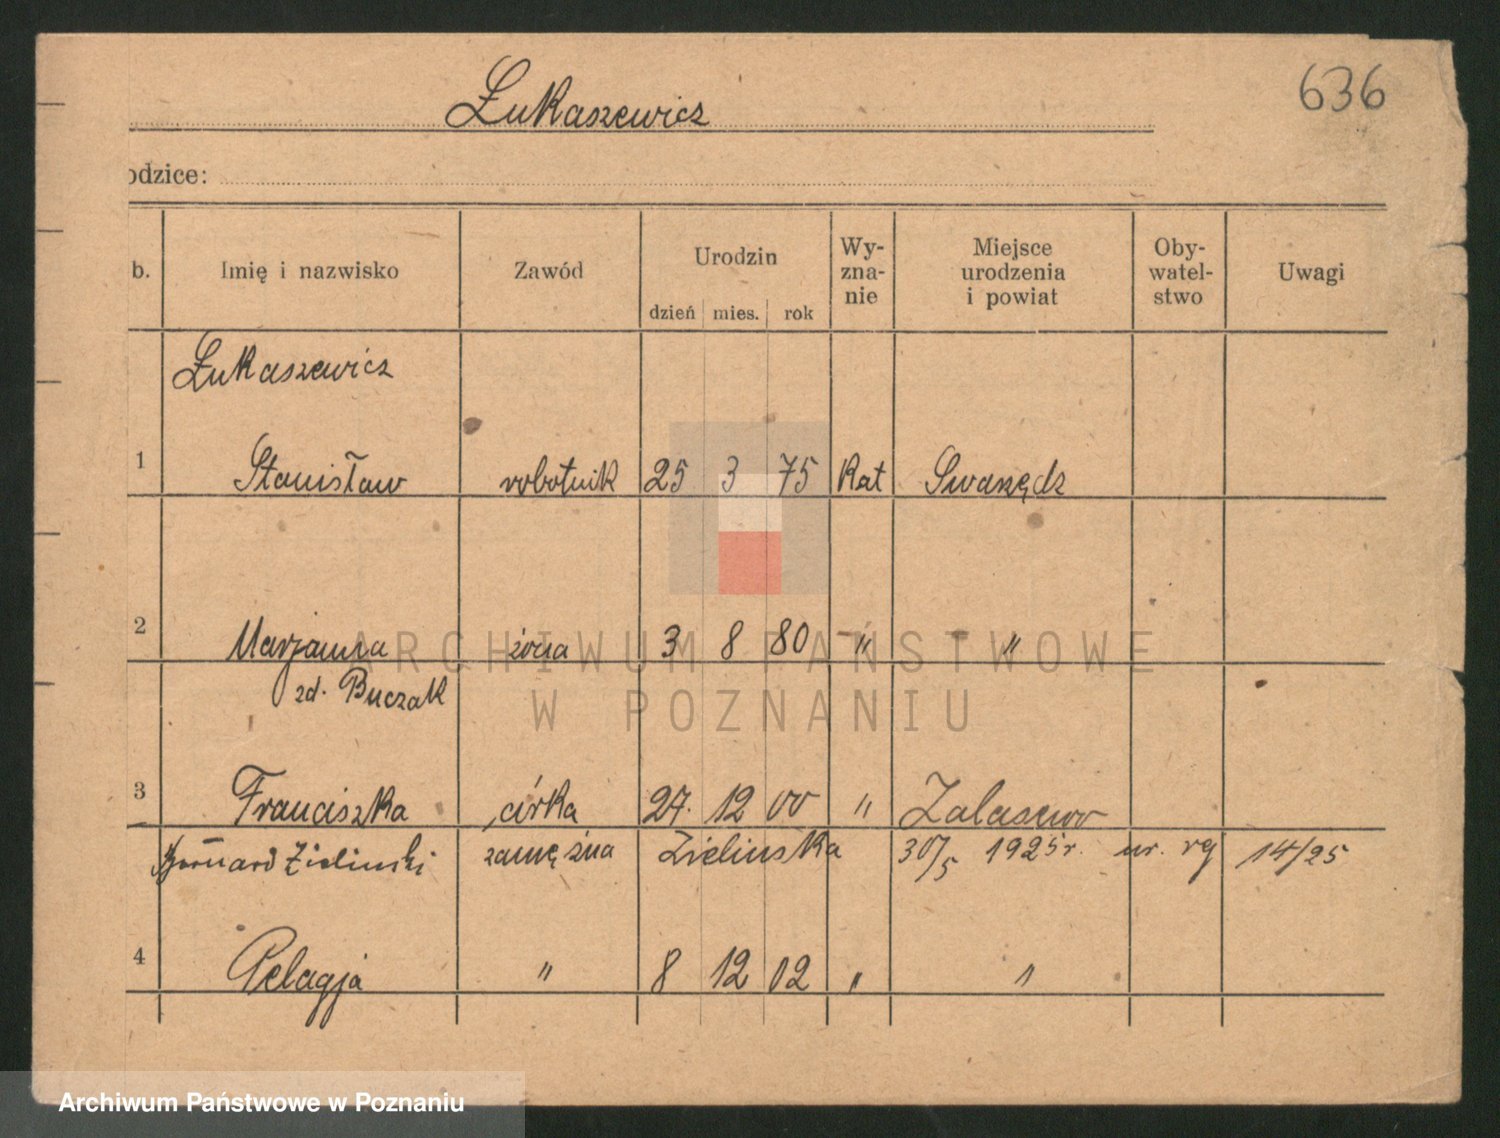 636
Łukaszewicz
odzice:
b. Imię i nazwisko Zawód Urodzin dzień mies. rok Wy-zna-nie Miejsce urodzenia i powiat Oby-watel-stwo Uwagi
Łukaszewicz
1 Stanisław robotnik 25 3 75 kat Swarzędz
2 Marjanna żona 3 8 80 " "
zd. Buczak
3 Franciszka córka 27. 12 00 " Zalasewo
Bernard Zieliński zamężna Zielinska 30/5 1925 r. nr. rg 14/25
4 Pelagja " 8 12 02 " "
ARCHIWUM PAŃSTWOWE
W POZNANIU
Archiwum Państwowe w Poznaniu